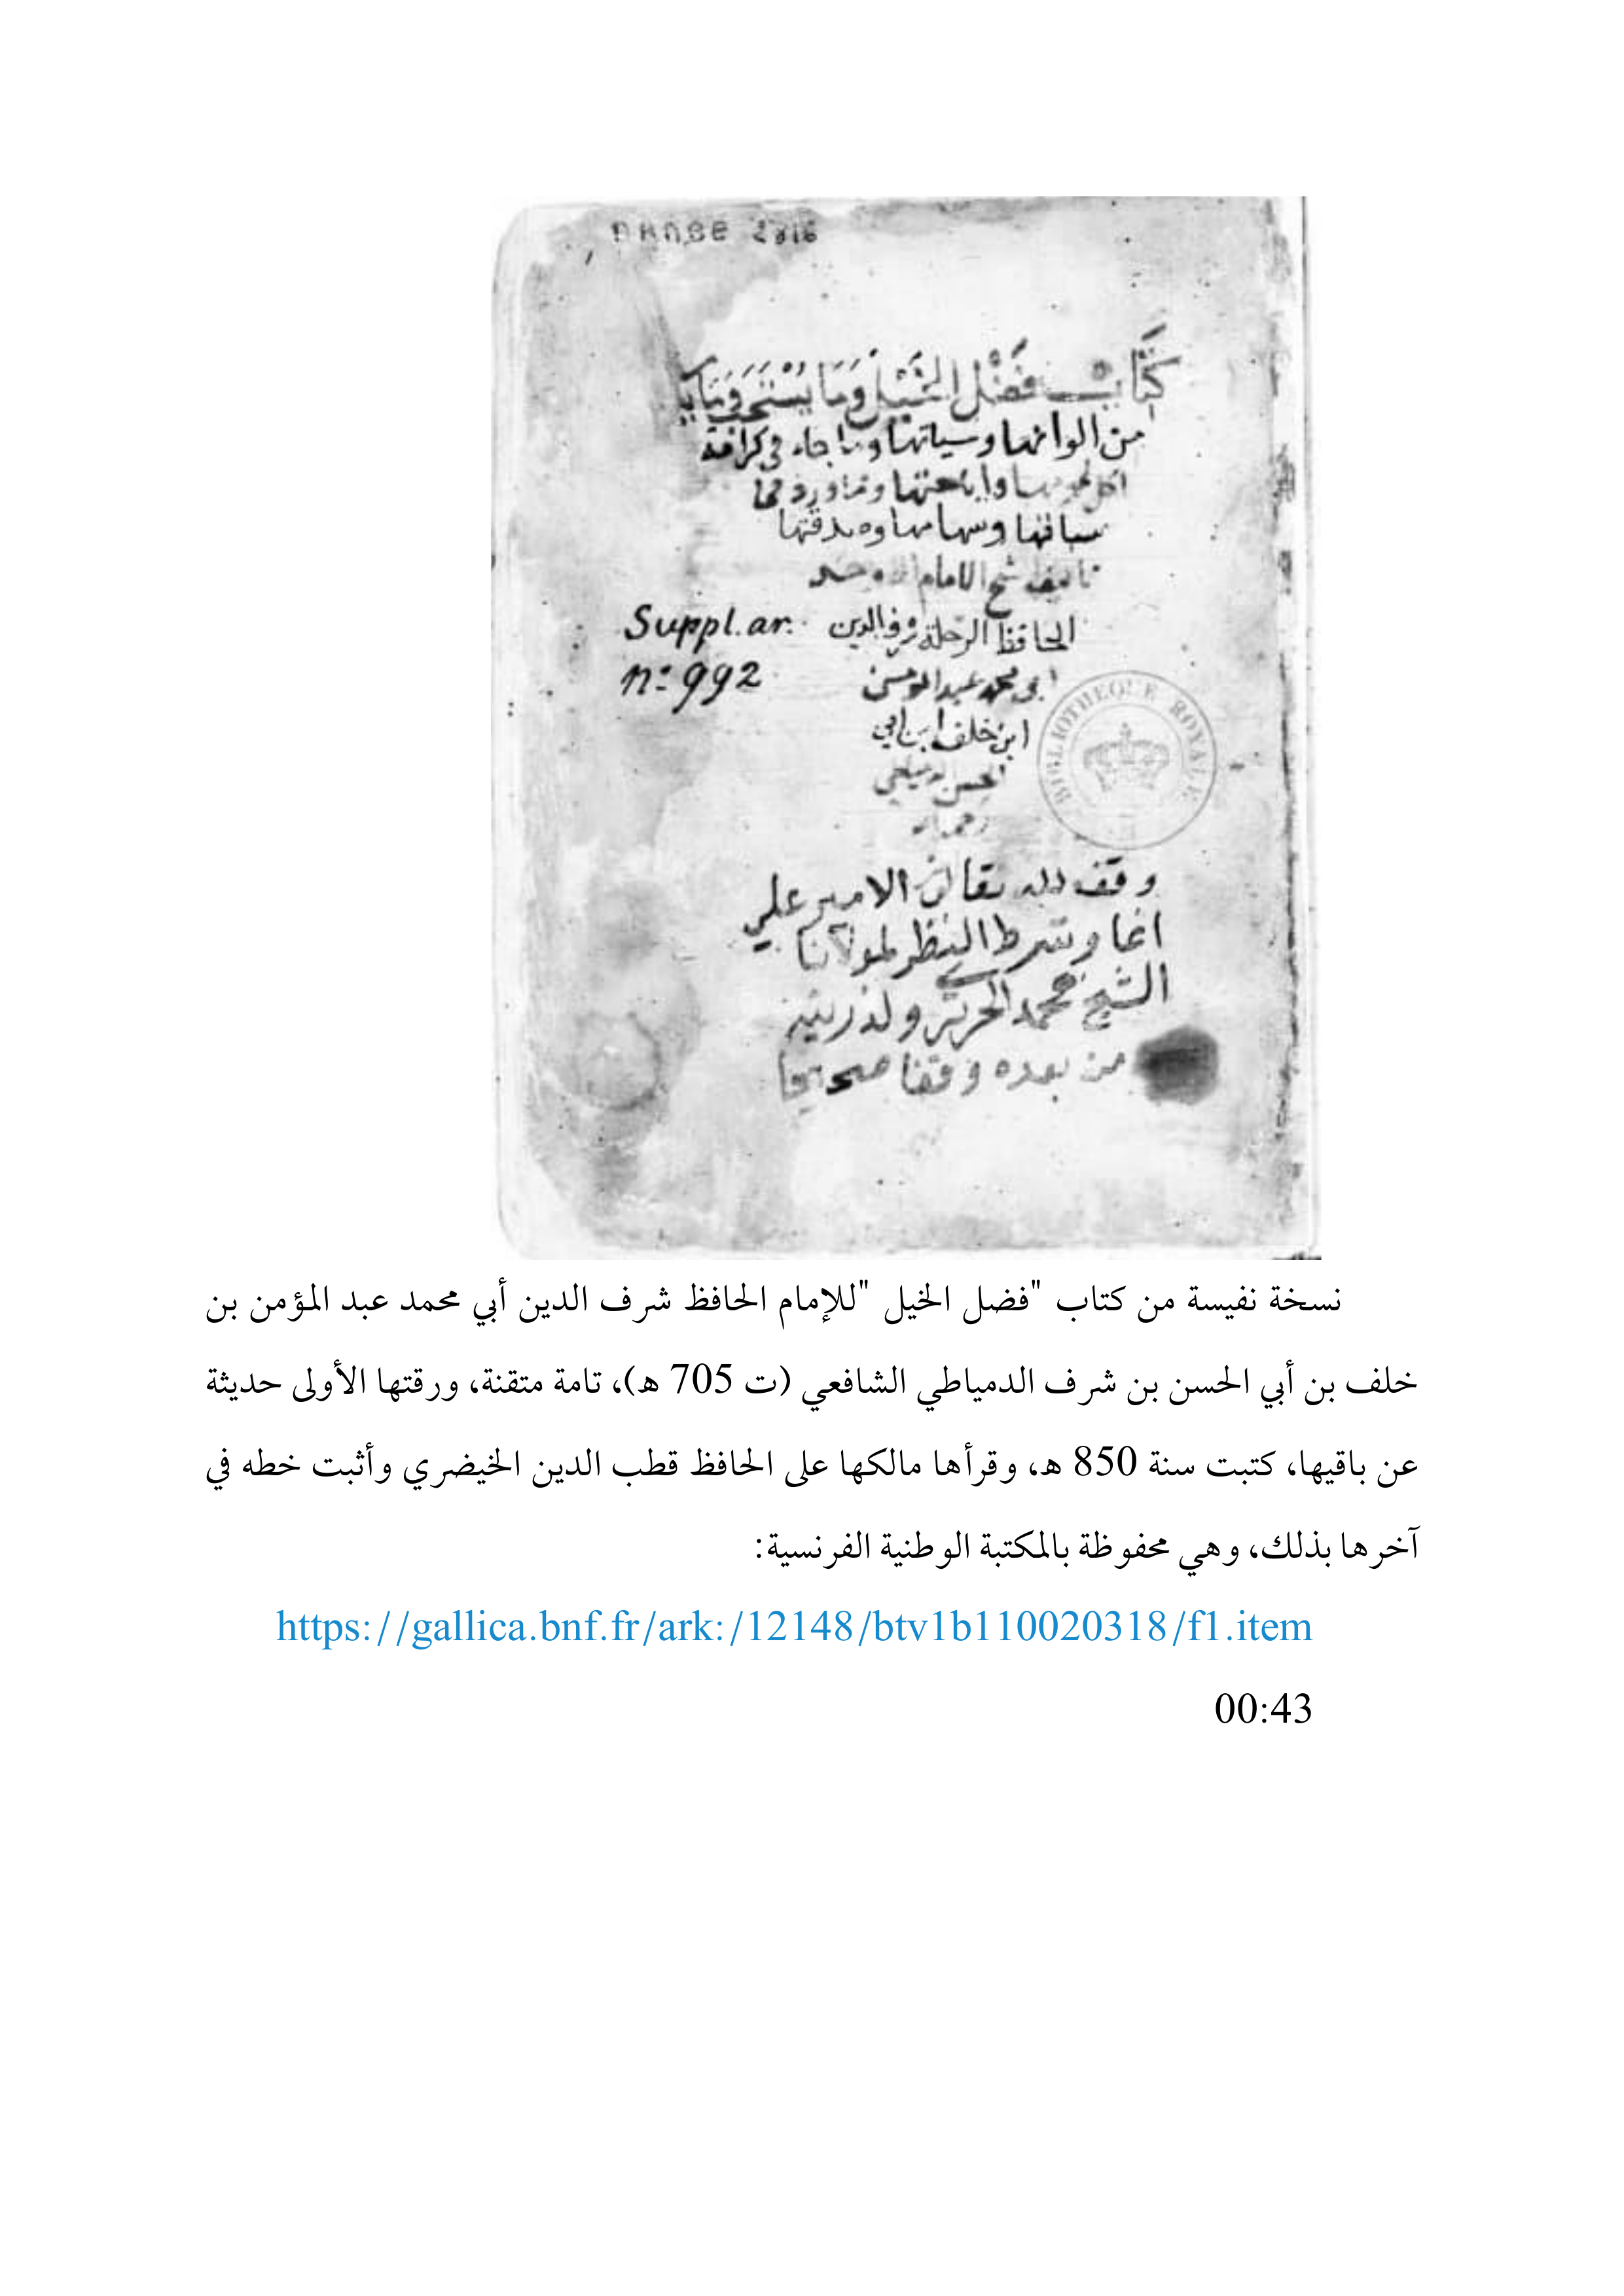 ARABE 2816
كتاب فضل الخيل وما يستحب وما يكره
من الوانها وسياتها وما جاء في كراهة
اكل لحومها واباحتها وما ورد في
سباقها وسهامها وصدقتها
تاليف شيخ الامام الاوحد
الحافظ الرحلة شرف الدين
Suppl. ar.
ابي محمد عبد المومن
nº 992
ابن خلف ابن ابي
الحسن الدمياطي
رحمه الله
BIBLIOTHEQUE ROYALE
وقف لله تعالى الامير علي
اغا وشرط النظر لمولانا
الشيخ محمد ولذريته
من بعده وقفا صحيحا
نسخة نفيسة من كتاب "فضل الخيل "للإمام الحافظ شرف الدين أبي محمد عبد المؤمن بن
خلف بن أبي الحسن بن شرف الدمياطي الشافعي (ت 705 ه)، تامة متقنة، ورقتها الأولى حديثة
عن باقيها، كتبت سنة 850 ه، وقرأها مالكها على الحافظ قطب الدين الخيضري وأثبت خطه في
آخرها بذلك، وهي محفوظة بالمكتبة الوطنية الفرنسية:
https://gallica.bnf.fr/ark:/12148/btv1b110020318/f1.item
00:43